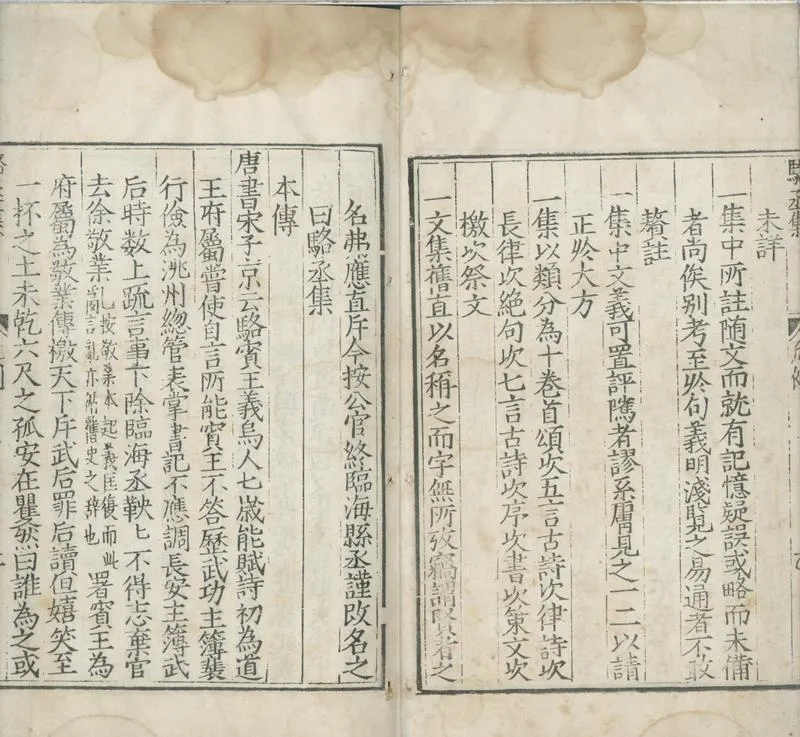 駱丞集
未詳
一集中所註随文而就有記憶疑誤或略而未備
者尚俟别考至於句義明淺覧之易通者不敢
贅註
一集中文義可置評隲者謬系膚見之一二以請
正於大方
一集以類分為十卷首頌次五言古詩次律詩次
長律次絶句次七言古詩次序次書次策文次
檄次祭文
一文集舊直以名稱之而字無所攷竊謂賢者之
名弗應直斥今按公官終臨海縣丞謹改名之
曰駱丞集
本傳
唐書宋子京云駱賓王義烏人七歲能賦詩初為道
王府屬嘗使自言所能賓王不答歷武功主簿裴
行儉為洮州總管表掌書記不應調長安主簿武
后時數上疏言事下除臨海丞鞅上不得志棄官
去徐敬業亂按敬業本起義匡復而此因言亂亦常舊史之辞也署賓王為
府屬為敬業傳檄天下斥武后罪后讀但嬉笑至
一抔之土未乾六尺之孤安在矍然曰誰為之或